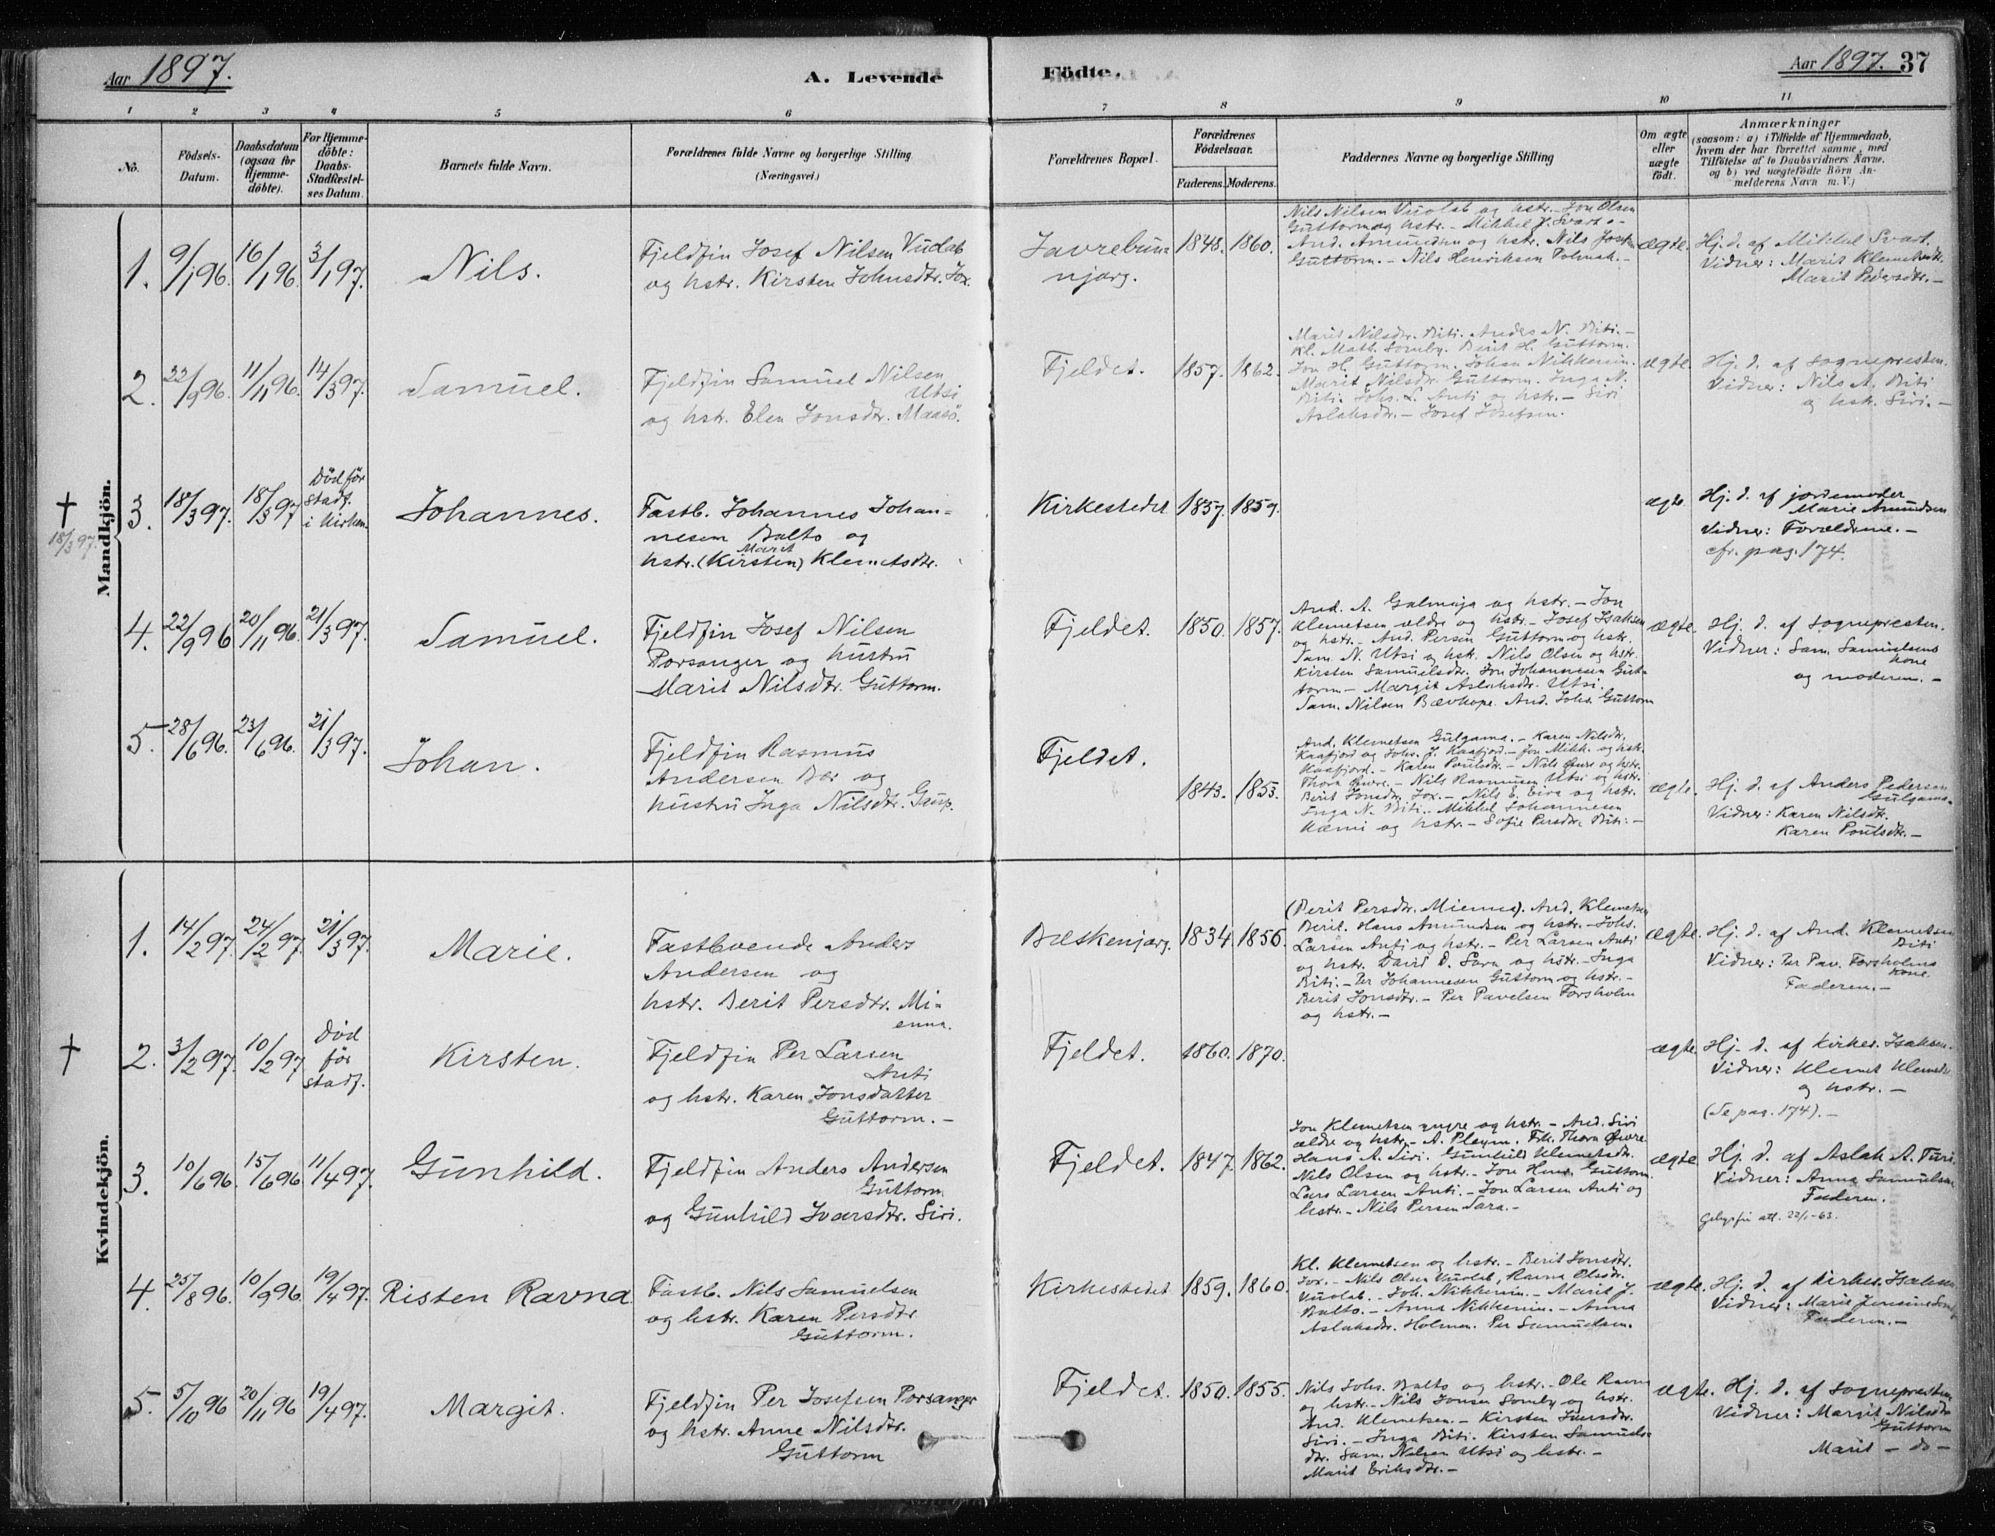 Aar 1897.
A. Levende Födte.
Aar 1897. 37
1 2 3 4 5 6 7 8 9 10 11
No.
Födsels-Datum.
Daabsdatum (ogsaa for Hjemme-döbte).
For Hjemme-döbte: Daabs-Stadfæstel-ses Datum.
Barnets fulde Navn.
Forældrenes fulde Navne og borgerlige Stilling
(Næringsvei.)
Forældrenes Bopæl.
Forældrenes Födselsaar.
Faderens. Moderens.
Faddernes Navne og borgerlige Stilling
Om ægte eller uægte födt.
Anmærkninger
(saasom: a) i Tilfælde af Hjemmedaab,
hvem der har forrettet samme, med
Tilföielse af to Daabsvidners Navne,
og b) ved uægtefödte Börn An-
melderens Navn m. V.)
Mandkjön.
1. 9/1 96. 16/1 96. 3/1 97. Nils.
Fjeldfin Josef Nilsen Vuolab
og hstr. Kirsten Johnsdtr. Jox.
njarg. 1848. 1860.
Nils Nilsen Vuolab og hstr. - Jon Olsen
Guttorm og hstr. - Mikkel J. Svart. -
And. Amundsen og hstr. Nils Josten
Guttorm. - Nils Henriksen Polmak. -
ægte.
Hj. d. af Mikkel Svart.
Vidner: Marit Klemetsdtr.
Marit Pedersdtr. -
2. 22/9 96. 11/11 96. 14/3 97. Samuel.
Fjeldfin Samuel Nilsen
Utsi
og hstr. Elen Jonsdtr. Maasö.
Fjeldet. 1857. 1862.
Marit Nilsdtr. Biti. Anders N. Biti. -
Kl. Math. Somby. Berit H. Guttorm.
Jon H. Guttorm. Johan Nikkenin.
Marit Nilsdtr. Guttorm. Inga N.
Biti. Johs. L. Anti og hstr. - Siri
Aslaksdtr. - Josef Josefsen.
ægte.
Hj. d. af sognepresten.
Vidner: Nils A. Biti
og hstr. Siri. -
† 18/3 97.
3. 18/3 97. 18/3 97 Död för stadf. i kirken. Johannes.
Fastb. Johannes Johan-
nesen Balto og
Marit
hstr. (Kirsten) Klemetsdtr.
Kirkestedet 1857. 1859.
ægte.
Hj. d. af jordemoder
Marie Amundsen
Vidner: Forældrene. -
cfr. pag. 174.
4. 22/9 96 20/11 96. 21/3 97. Samuel.
Fjeldfin Josef Nilsen
Porsanger og hustru
Marit Nilsdtr. Guttorm.
Fjeldet. 1850. 1857.
And. A. Galmuja og hstr. - Jon
Klemetsen ældre og hstr. - Josef Isaksen
og hstr. - And. Persen Guttorm og hstr.
Sam. N. Utsi og hstr. Nils Olsen og hstr.
Kirsten Samuelsdtr. Jon Johannesen Gut-
torm - Margit Aslaksdtr. Utsi.
Sam. Nilsen Bævkope. And. Johs. Guttorm
ægte.
Hj. d. af sognepresten.
Vidner: Sam. Samuelsens
kone
og moderen. -
5. 28/6 96. 23/6 96. 21/3 97. Johan.
Fjeldfin Rasmus
Andersen Bær og
hustru Inga Nilsdtr. Gaup.
Fjeldet. 1843. 1853.
And. Klemetsen Gulgama. - Karen Nilsdtr.
Kaafjord og Johs. J. Kaafjord. - Jon Mikk. og hstr.
Kaafjord. - Karen Poulsdtr. - Nils Övre og hstr.
Thora Övre. - Nils Rasmusen Utsi og hstr.
Berit Jonsdtr. Jox. - Nils E. Eira og hstr.
Inga N. Biti. - Mikkel Johannesen
og hstr. - Sofie Persdtr. Biti. -
ægte.
Hj. d. af Anders Pedersen
Gulgama.
Vidner: Karen Nilsdtr.
Karen Poulsdtr. -
Kvindekjön.
1. 14/2 97. 24/2 97. 21/3 97. Marie.
Fastboende Anders
Andersen og
hstr. Berit Persdtr. Mi-
enna.
Bæskenjarg. 1834. 1856.
(Berit Persdtr. Mienna). And. Klemetsen
Berit. Hans Amundsen og hstr. - Johs.
Larsen Anti og hstr. - Per Larsen Anti
og hstr. David D. Sara og hstr. - Inga
Biti. - Per Johannesen Guttorm og hstr. -
Berit Jonsdtr. - Per Pavelsen Forsholm
og hstr. -
ægte.
Hj. d. af And. Klemetsen
Biti
Vidner: Per Pav. Forsholms
kone.
Faderen. -
†
2. 3/2 97. 10/2 97 Död för stadf. Kirsten.
Fjeldfin Per Larsen
Anti
og hstr. Karen Jonsdatter
Guttorm. -
Fjeldet. 1860. 1870.
ægte.
Hj. d. af kirkes. Isaksen.
Vidner: Klemet Klemetsen
og hstr. -
(Se pag. 174). -
3. 10/6 96. 15/6 96 11/4 97. Gunhild.
Fjeldfin Anders Andersen
Guttorm.
og Gunhild Ivarsdtr. Siri.
Fjeldet. 1847. 1862.
Jon Klemetsen yngre og hstr. - And. Siri
ældre og hstr. - A. Pleym. Frk. Thora Övre.
Hans A. Siri. Gunhild Klemetsdtr.
Nils Olsen og hstr. - Jon Hans. Guttorm
Lars Larsen Anti. - Jon Larsen Anti og
hstr. - Nils Persen Sara. -
ægte
Hj. d. af Aslak A. Turi.
Vidner: Anna Samuelsen
Faderen.
att. 22/1-63.
4. 25/8 96. 10/9 96. 19/4 97. Risten Ravna
Fastb. Nils Samuelsen
og hstr. Karen Persdtr
Guttorm.
Kirkestedet 1859. 1860.
Kl. Klemetsen og hstr. - Berit Jonsdtr.
Jox. - Nils Olsen Vuolab, Ravna Olsdtr.
Vuolab. - Joh. Nikkenin. - Marit J.
Balto. - Anna Nikkenin. - Anna
Aslaksdtr. Holmen. Per Samuelsen.
ægte.
Hj. d. af kirkes. Isaksen
Vidner: Marie Jensine
Faderen. -
5. 5/10 96 20/11 96 19/4 97. Margit.
Fjeldfin Per Josefsen Porsanger
og hstr. Anne Nilsdtr.
Guttorm
Fjeldet. 1850. 1855.
Nils Johs. Balto og hstr. - Ole Ravna
og hstr. - Nils Jonsen Somby og hstr.
And. Klemetsen. - Kirsten Ivarsdtr.
Siri. - Inga Biti. Kirsten Samuels-
dtr. Sam. Nilsen Utsi og hstr. -
Marit Eriksdtr. -
ægte.
Hj. d. af sognepresten,
Vidner: Margit Nilsdtr
Guttorm
Marit - do -